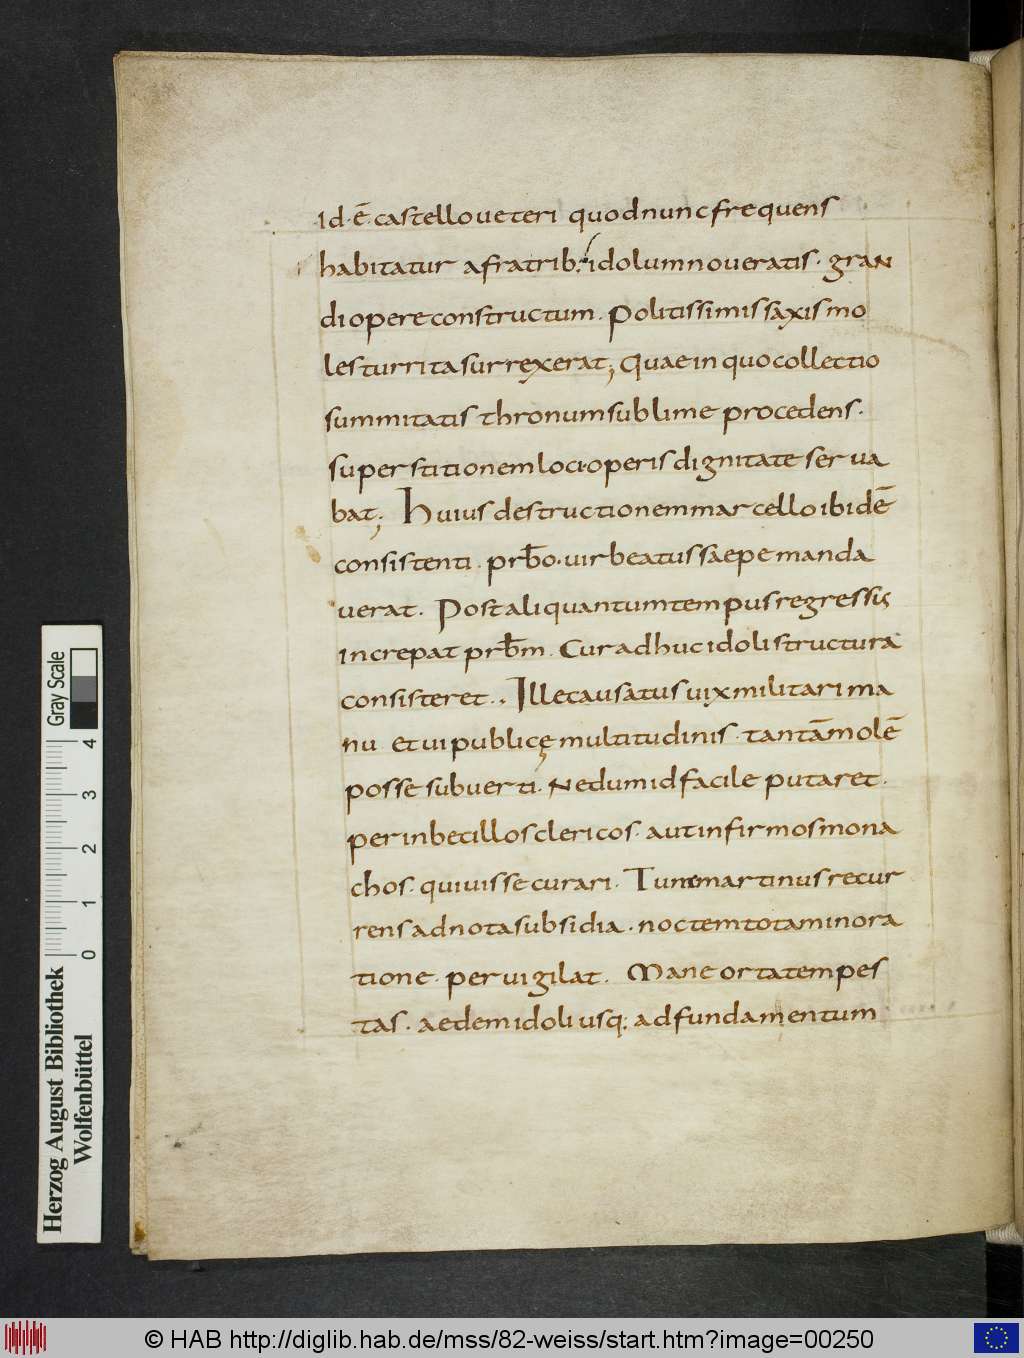 id·ē· castello ueteri quod nunc frequens
habitatur a fratrib; idolum noueratis· gran
di opere constructum· Politissimis saxis mo
les turrita surrexerat; Quae in quo collectio
summitatis thronum sublime procedens·
superstitionem loci· operis dignitate serua
bat; Huius destructionem marcello ibidē
consistenti· prb̄o· uir beatus saepe manda
uerat· Post aliquantum tempus regressis
increpat prb̄m· Cur adhuc idoli structura
consisteret·, Ille causatus uix militari ma
nu et ui publicę multitudinis· tantā molē
posse subuerti· Nedum id facile putaret·
per inbecillos clericos· aut infirmos mona
chos· quiuisse curari· Tunc martinus recur
rens ad nota subsidia· noctem totam in ora
tione· peruigilat· Mane orta tempes
tas· aedem idoli usq; ad fundamentum
Herzog August Bibliothek
Wolfenbüttel
Gray Scale
0 1 2 3 4
© HAB http://diglib.hab.de/mss/82-weiss/start.htm?image=00250